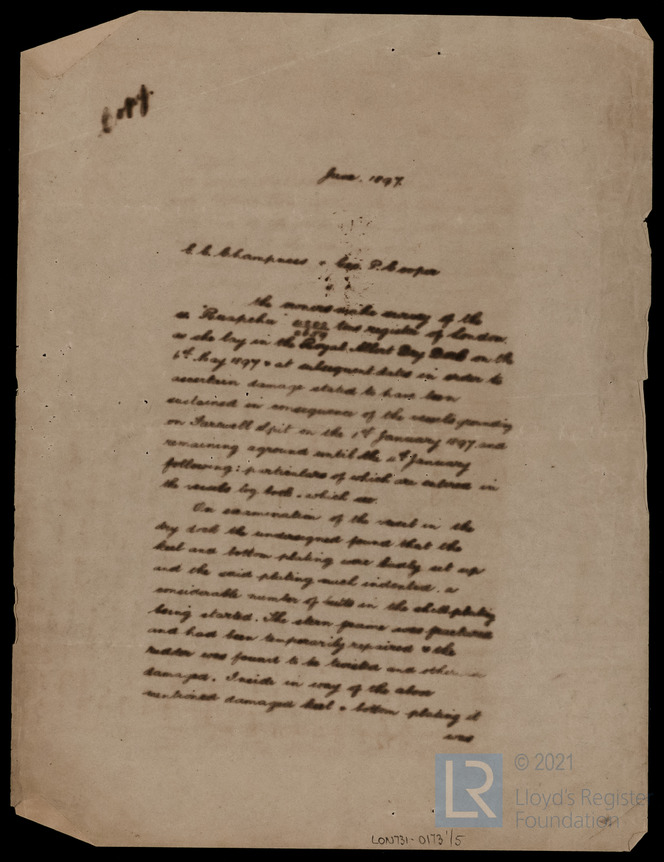 Copy
June. 1897.
C. C. Champness & Geo. P. Cooper
the owners make survey of the
ss "Ruapehu" tons register of London
as she lay in the Royal Albert Dry Dock on the
6th May 1897 & at subsequent dates in order to
ascertain damage stated to have been
sustained in consequence of the vessels grounding
on Farewell Spit on the 1st January 1897 and
remaining aground until the January
following; particulars of which are entered in
the vessels log book, which see.
On examination of the vessel in the
dry dock the undersigned found that the
keel and bottom plating were badly set up
and the said plating much indented, a
considerable number of butts in the shell plating
being started. The stern frame was fractured
and had been temporarily repaired & the
rudder was found to be twisted and otherwise
damaged. Inside in way of the above
mentioned damaged keel & bottom plating it
was
LR
© 2021
Lloyd's Register
Foundation
LON731-0173/5